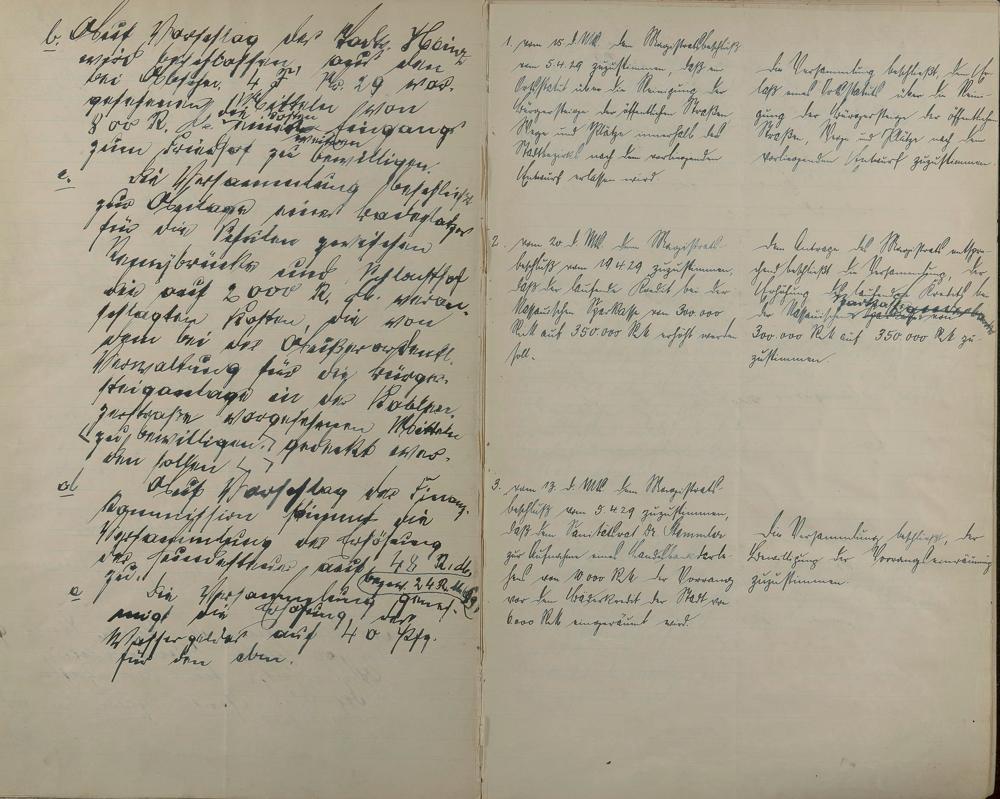 b. Auf Vorschlag des Stadtv. Heinz
wird beschlossen, aus den
bei Abschn. 4 T. No. 29 vor-
gesehenen Mitteln von
800 R. M. die Kosten
eines weiteren Eingangs
zum Friedhof zu bewilligen.
c. Die Versammlung beschließt
zur Anlage eines Badeplatzes
für die Schulen zwischen
und Schlachthof
die auf 2000 R. M. veran-
schlagten Kosten, die von
dem bei der Außerordentl.
Verwaltung für die Bürger-
steiganlage in der Koblen-
zerstraße vorgesehenen Mitteln
<zu bewilligen.> gedeckt wer-
den sollen
d Auf Vorschlag der Finanz-
kommission stimmt die
Versammlung der Erhöhung
der Hundesteuer auf 48 R. M.
bezw. 24 R. M.
zu.
e Die Versammlung geneh-
migt die Erhöhung des
Wassergeldes auf 40 Pfg.
für den cbm.
1. vom 15. d. Mts. dem Magistratsbeschluß
vom 5.4.29 zuzustimmen, daß ein
Ortsstatut über die Reinigung der
Bürgersteige der öffentlichen Straßen
Wege und Plätze innerhalb des
Stadtbezirks nach dem vorliegenden
Entwurf erlassen wird.
Die Versammlung beschließt, dem Er-
laß eines Ortsstatuts über die Reini-
gung der Bürgersteige der öffentlichen
Straßen, Wege und Plätze nach dem
vorliegenden Entwurf zuzustimmen
2. vom 20. d. Mts. dem Magistrats-
beschluß vom 19.4.29 zuzustimmen,
daß der laufende Kredit bei der
Nassauischen Sparkasse von 300.000
RM auf 350.000 RM erhöht werden
soll.
Dem Antrage des Magistrats entspre-
chend beschließt die Versammlung, der
Erhöhung des laufenden Kredits bei
der Nassauischen Sparkasse von
300.000 RM auf 350.000 RM zu-
zustimmen.
3. vom 13. d. Mts. dem Magistrats-
beschluß vom 5.4.29 zuzustimmen,
daß dem Sanitätsrat Dr. Stemmler
zur Aufnahme eines Landesbankdarle-
hens von 10000 RM der Vorrang
vor dem Bürgerkredit der Stadt von
6000 RM eingeräumt wird.
Die Versammlung beschließt, der
Bewilligung der Vorrangseinräumung
zuzustimmen.